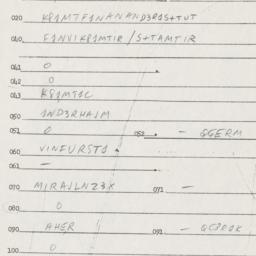 020 K81MTF1NANAND3R1S+TUT
040 F1NVIKR1MTIR/S+TAMTIR
041 0
042 0
043 K81MT1C
050 1ND3RHAJM
051 0 052 - GGERM
060 VINFURST1
061 -
070 MIRAJLNZ3X 071 -
080 0
090 AHER 091 -
100 0